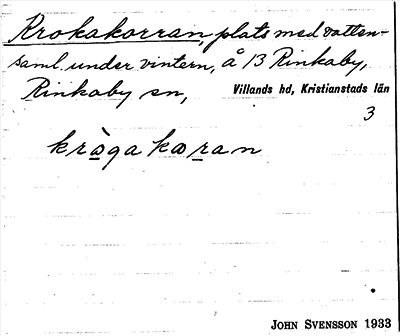 Krokakorran, plats med vatten-
saml. under vintern, å 13 Rinkaby,
Rinkaby sn, Villands hd, Kristianstads län
3
kròga koran
JOHN SVENSSON 1933